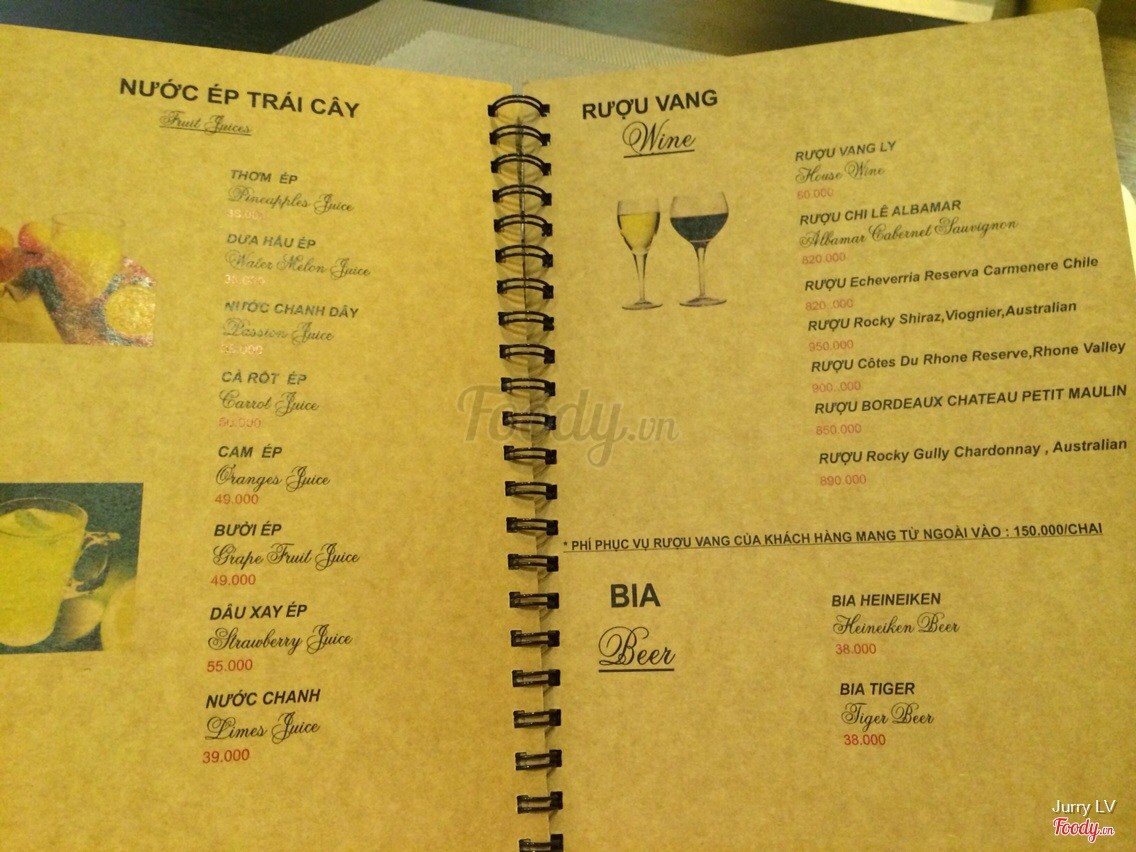 NƯỚC ÉP TRÁI CÂY
Fruit Juices
THƠM ÉP
Pineapples Juice
DƯA HẤU ÉP
Water Melon Juice
NƯỚC CHANH DÂY
Passion Juice
CÀ RỐT ÉP
Carrot Juice
50.000
CAM ÉP
Oranges Juice
49.000
BƯỞI ÉP
Grape Fruit Juice
49.000
DÂU XAY ÉP
Strawberry Juice
55.000
NƯỚC CHANH
Limes Juice
39.000
RƯỢU VANG
Wine
RƯỢU VANG LY
House Wine
RƯỢU CHI LÊ ALBAMAR
Albamar Cabernet Sauvignon
820.000
RƯỢU Echeverria Reserva Carmenere Chile
820..000
RƯỢU Rocky Shiraz,Viognier,Australian
950.000
RƯỢU Côtes Du Rhone Reserve,Rhone Valley
900..000
RƯỢU BORDEAUX CHATEAU PETIT MAULIN
850.000
RƯỢU Rocky Gully Chardonnay , Australian
890.000
* PHÍ PHỤC VỤ RƯỢU VANG CỦA KHÁCH HÀNG MANG TỪ NGOÀI VÀO : 150.000/CHAI
BIA
Beer
BIA HEINEIKEN
Heineiken Beer
38.000
BIA TIGER
Tiger Beer
38.000
Foody.vn
Jurry LV
Foody.vn